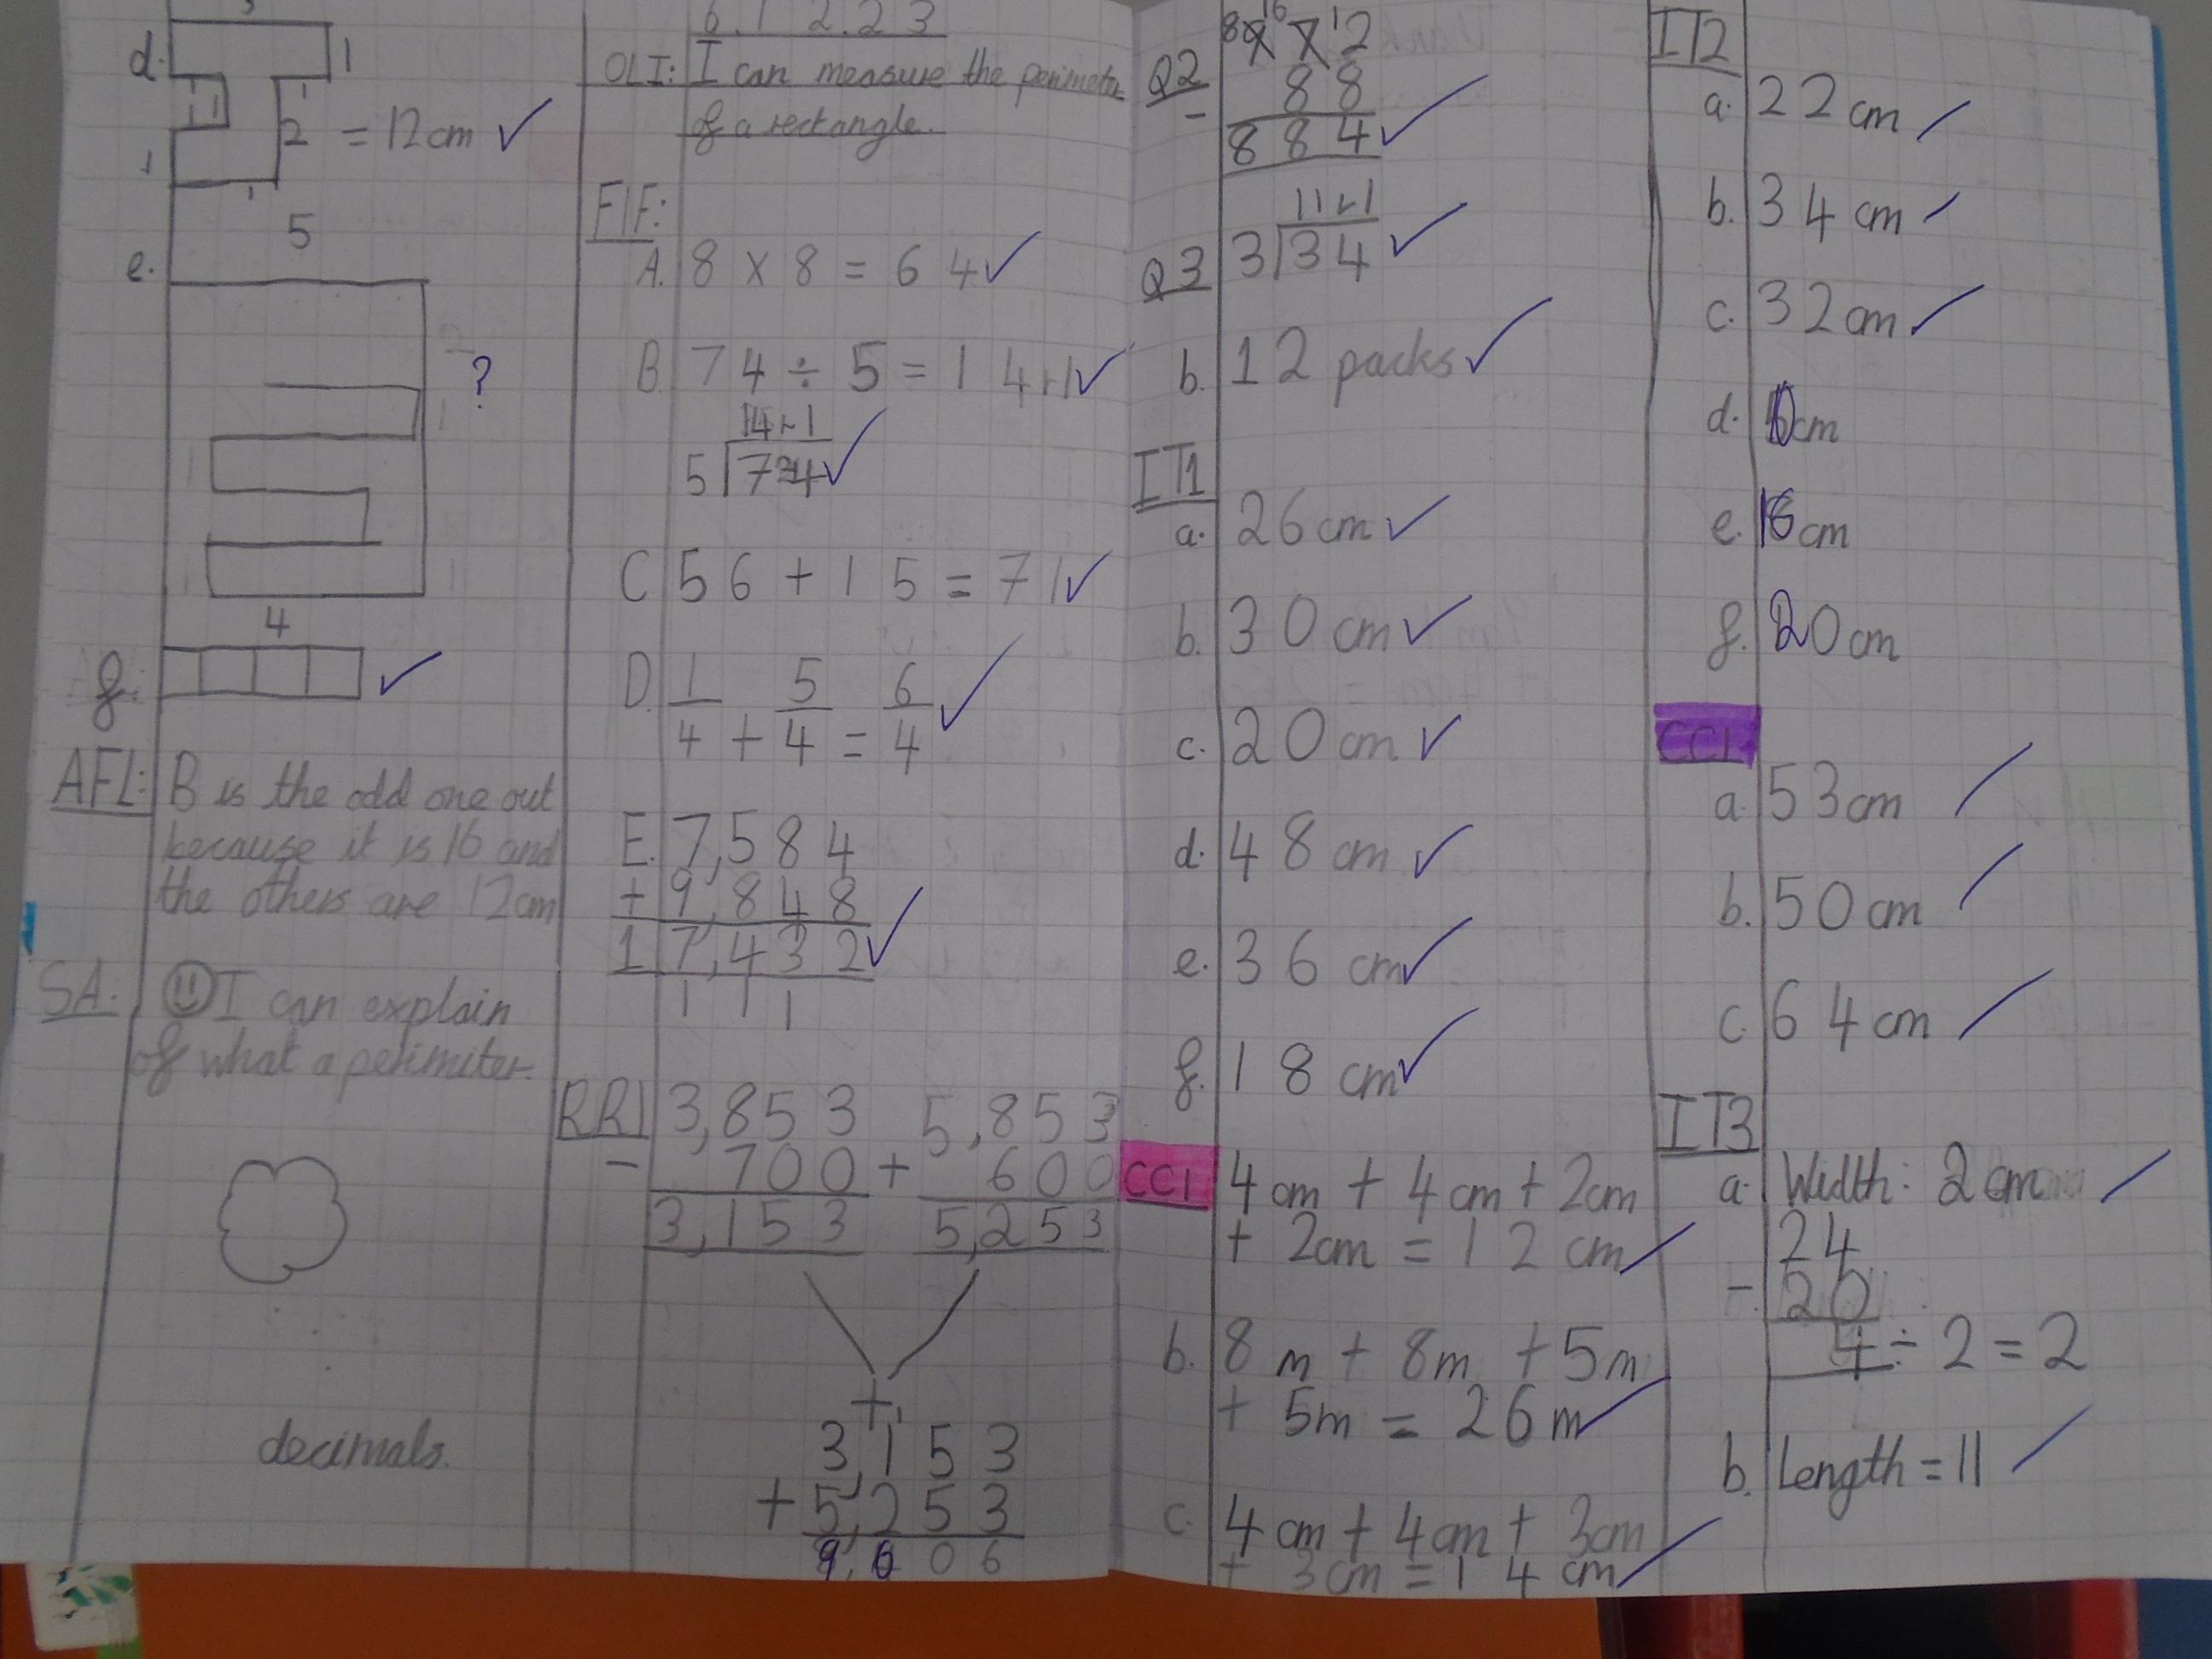 d.
1
1 1
1
2 = 12cm
1
1
5
e.
?
1
1
1
1
4
f.
AFL: B is the odd one out
because it is 16 and
the others are 12cm
SA: I can explain
of what a perimiter.
decimals.
6.12.23
OLI: I can measure the perimeter
of a rectangle.
FIF:
A. 8 x 8 = 64
B. 74 ÷ 5 = 14r1
14r1
5 724
C 56 + 15 = 71
D. 1 5 6
4 + 4 = 4
E. 7,584
+ 9,848
17,432
1 1 1
RR1 3,853 5,853
- 700 + 600
3,153 5,253
+
3,153
+ 5,253
06
16 1 2
Q2
- 88
884
11r1
Q3 3 34
b. 12 packs
IT1
a. 26cm
b. 30cm
c. 20cm
d. 48cm
e. 36cm
f. 18cm
CC1 4cm + 4cm + 2cm
+ 2cm = 12cm
b. 8m + 8m + 5m
+ 5m = 26m
c. 4cm + 4cm + 3cm
+ 3cm = 14cm
IT2
a. 22cm
b. 34cm
c. 32cm
d. cm
e. cm
f. 20cm
CC1
a. 53cm
b. 50cm
c. 64cm
IT3
a. Width: 2cm
24
- 20
4 ÷ 2 = 2
b. Length = 11